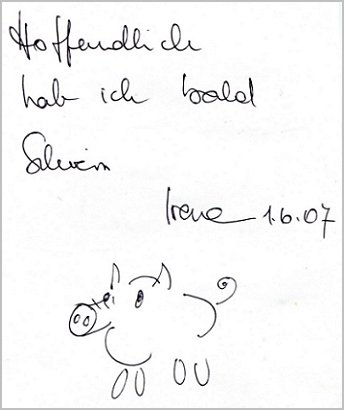 Hoffendlich
hab ich bald
Schwein
Irene 1.6.07